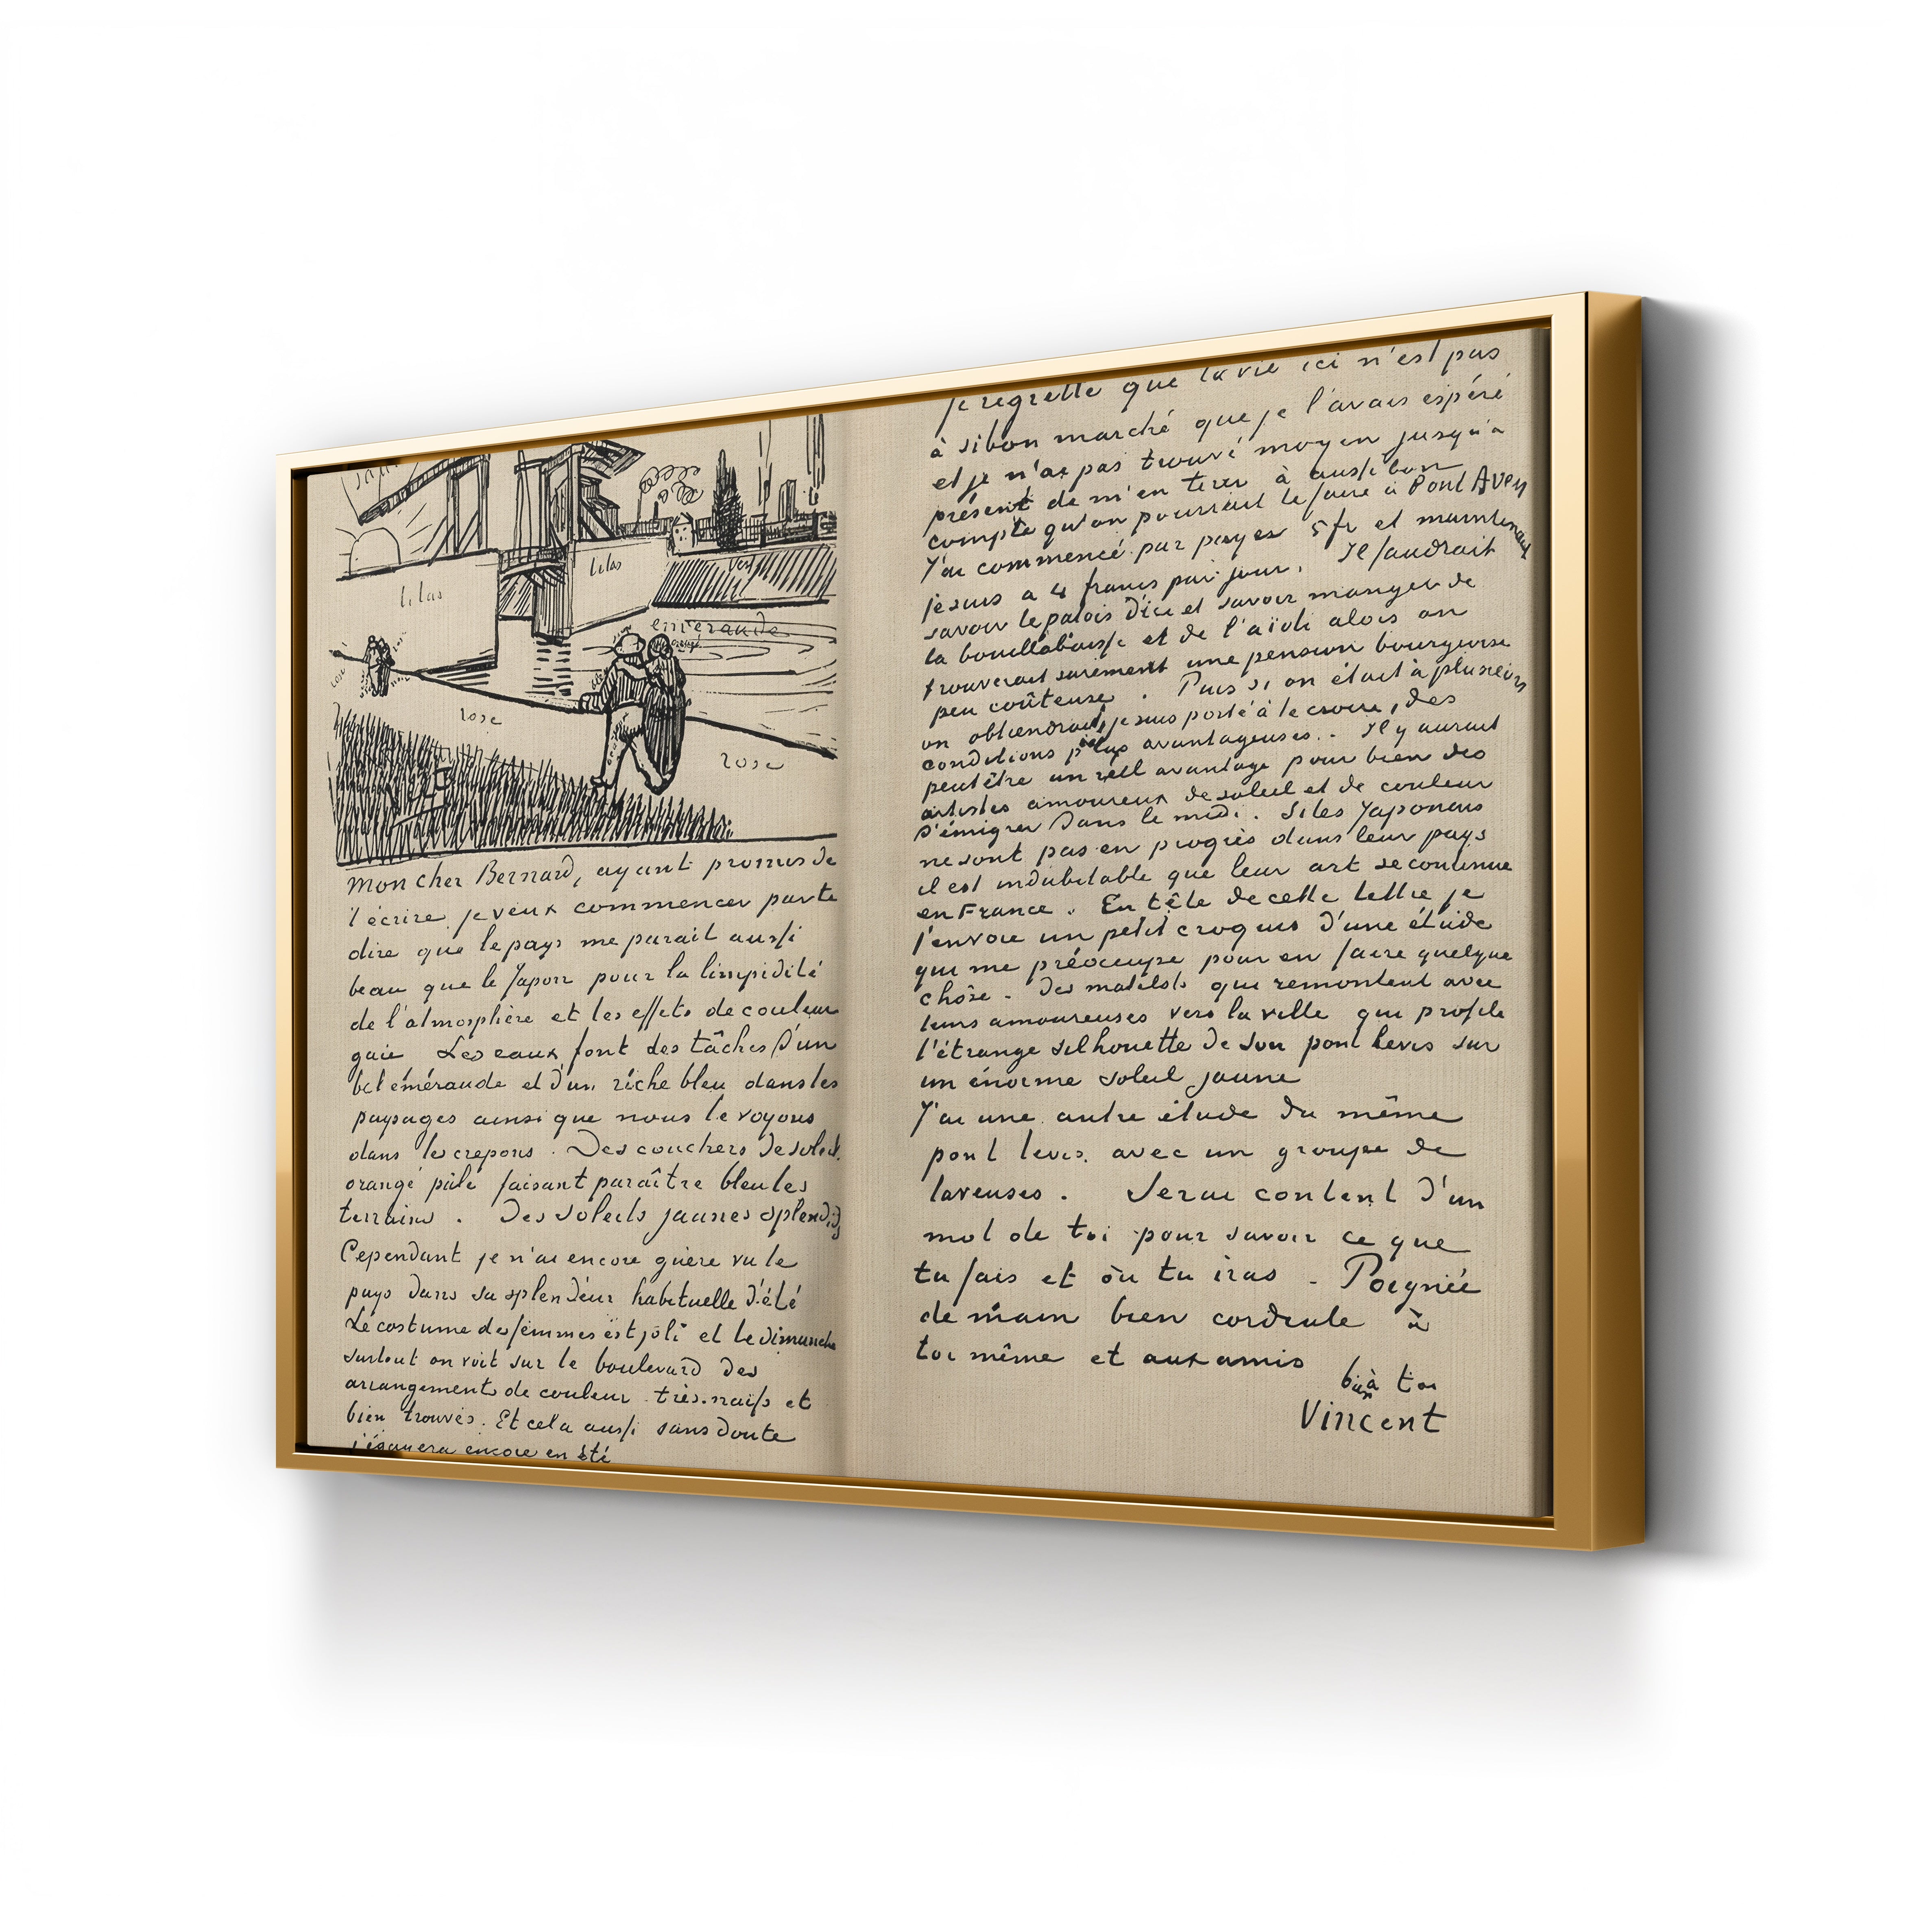 lilas
lilas
vert
emeraude
rose
rose
Mon cher Bernard, ayant promis de
t'écrire je veux commencer par te
dire que le pays me parait aussi
beau que le Japon pour la limpidité
de l'atmosphère et les effets de couleur
gaie Les eaux font des tâches d'un
bel éméraude et d'un riche bleu dans les
paysages ainsi que nous le voyons
dans les crepons. Des couchers de soleil
orangé pâle faisant paraître bleu les
terrains. Des soleils jaunes splendids
Cependant je n'ai encore guère vu le
pays dans sa splendeur habituelle d'été
Le costume des femmes est joli et le dimanche
surtout on voit sur le boulevard des
arrangements de couleur très naifs et
bien trouvés. Et cela aussi sans doute
s'égayera encore en été
Je regrette que la vie ici n'est pas
à si bon marché que je l'avais espéré
et je n'ai pas trouvé moyen jusqu'à
présent de m'en tirer à aussi bon
compte qu'on pourrait le faire à Pont Aven
J'ai commencé par payer 5 fr et maintenant
je suis a 4 francs par jour. Il faudrait
savoir le patois d'ici et savoir manger de
la bouillabaisse et de l'aïoli alors on
trouverait surement une pension bourgeoise
peu coûteuse. Puis si on était à plusieurs
on obtiendrait, je suis porté à le croire, des
conditions plus avantageuses. Il y aurait
peut être un réell avantage pour bien des
artistes amoureux de soleil et de couleur
d'émigrer dans le midi. Si les Japonais
ne sont pas en progrès dans leur pays
il est indubitable que leur art se continue
en France. En tête de cette lettre je
t'envoie un petit croquis d'une étude
qui me préoccupe pour en faire quelque
chôse - Des matelots qui remontent avec
leurs amoureuses vers la ville qui profile
l'étrange silhouette de son pont levis sur
un énorme soleil jaune
J'ai une autre étude du même
pont levis. avec un groupe de
laveuses. Serai content d'un
mot de toi pour savoir ce que
tu fais et où tu iras - Poignée
de main bien cordiale à
toi même et aux amis
bien à toi
Vincent